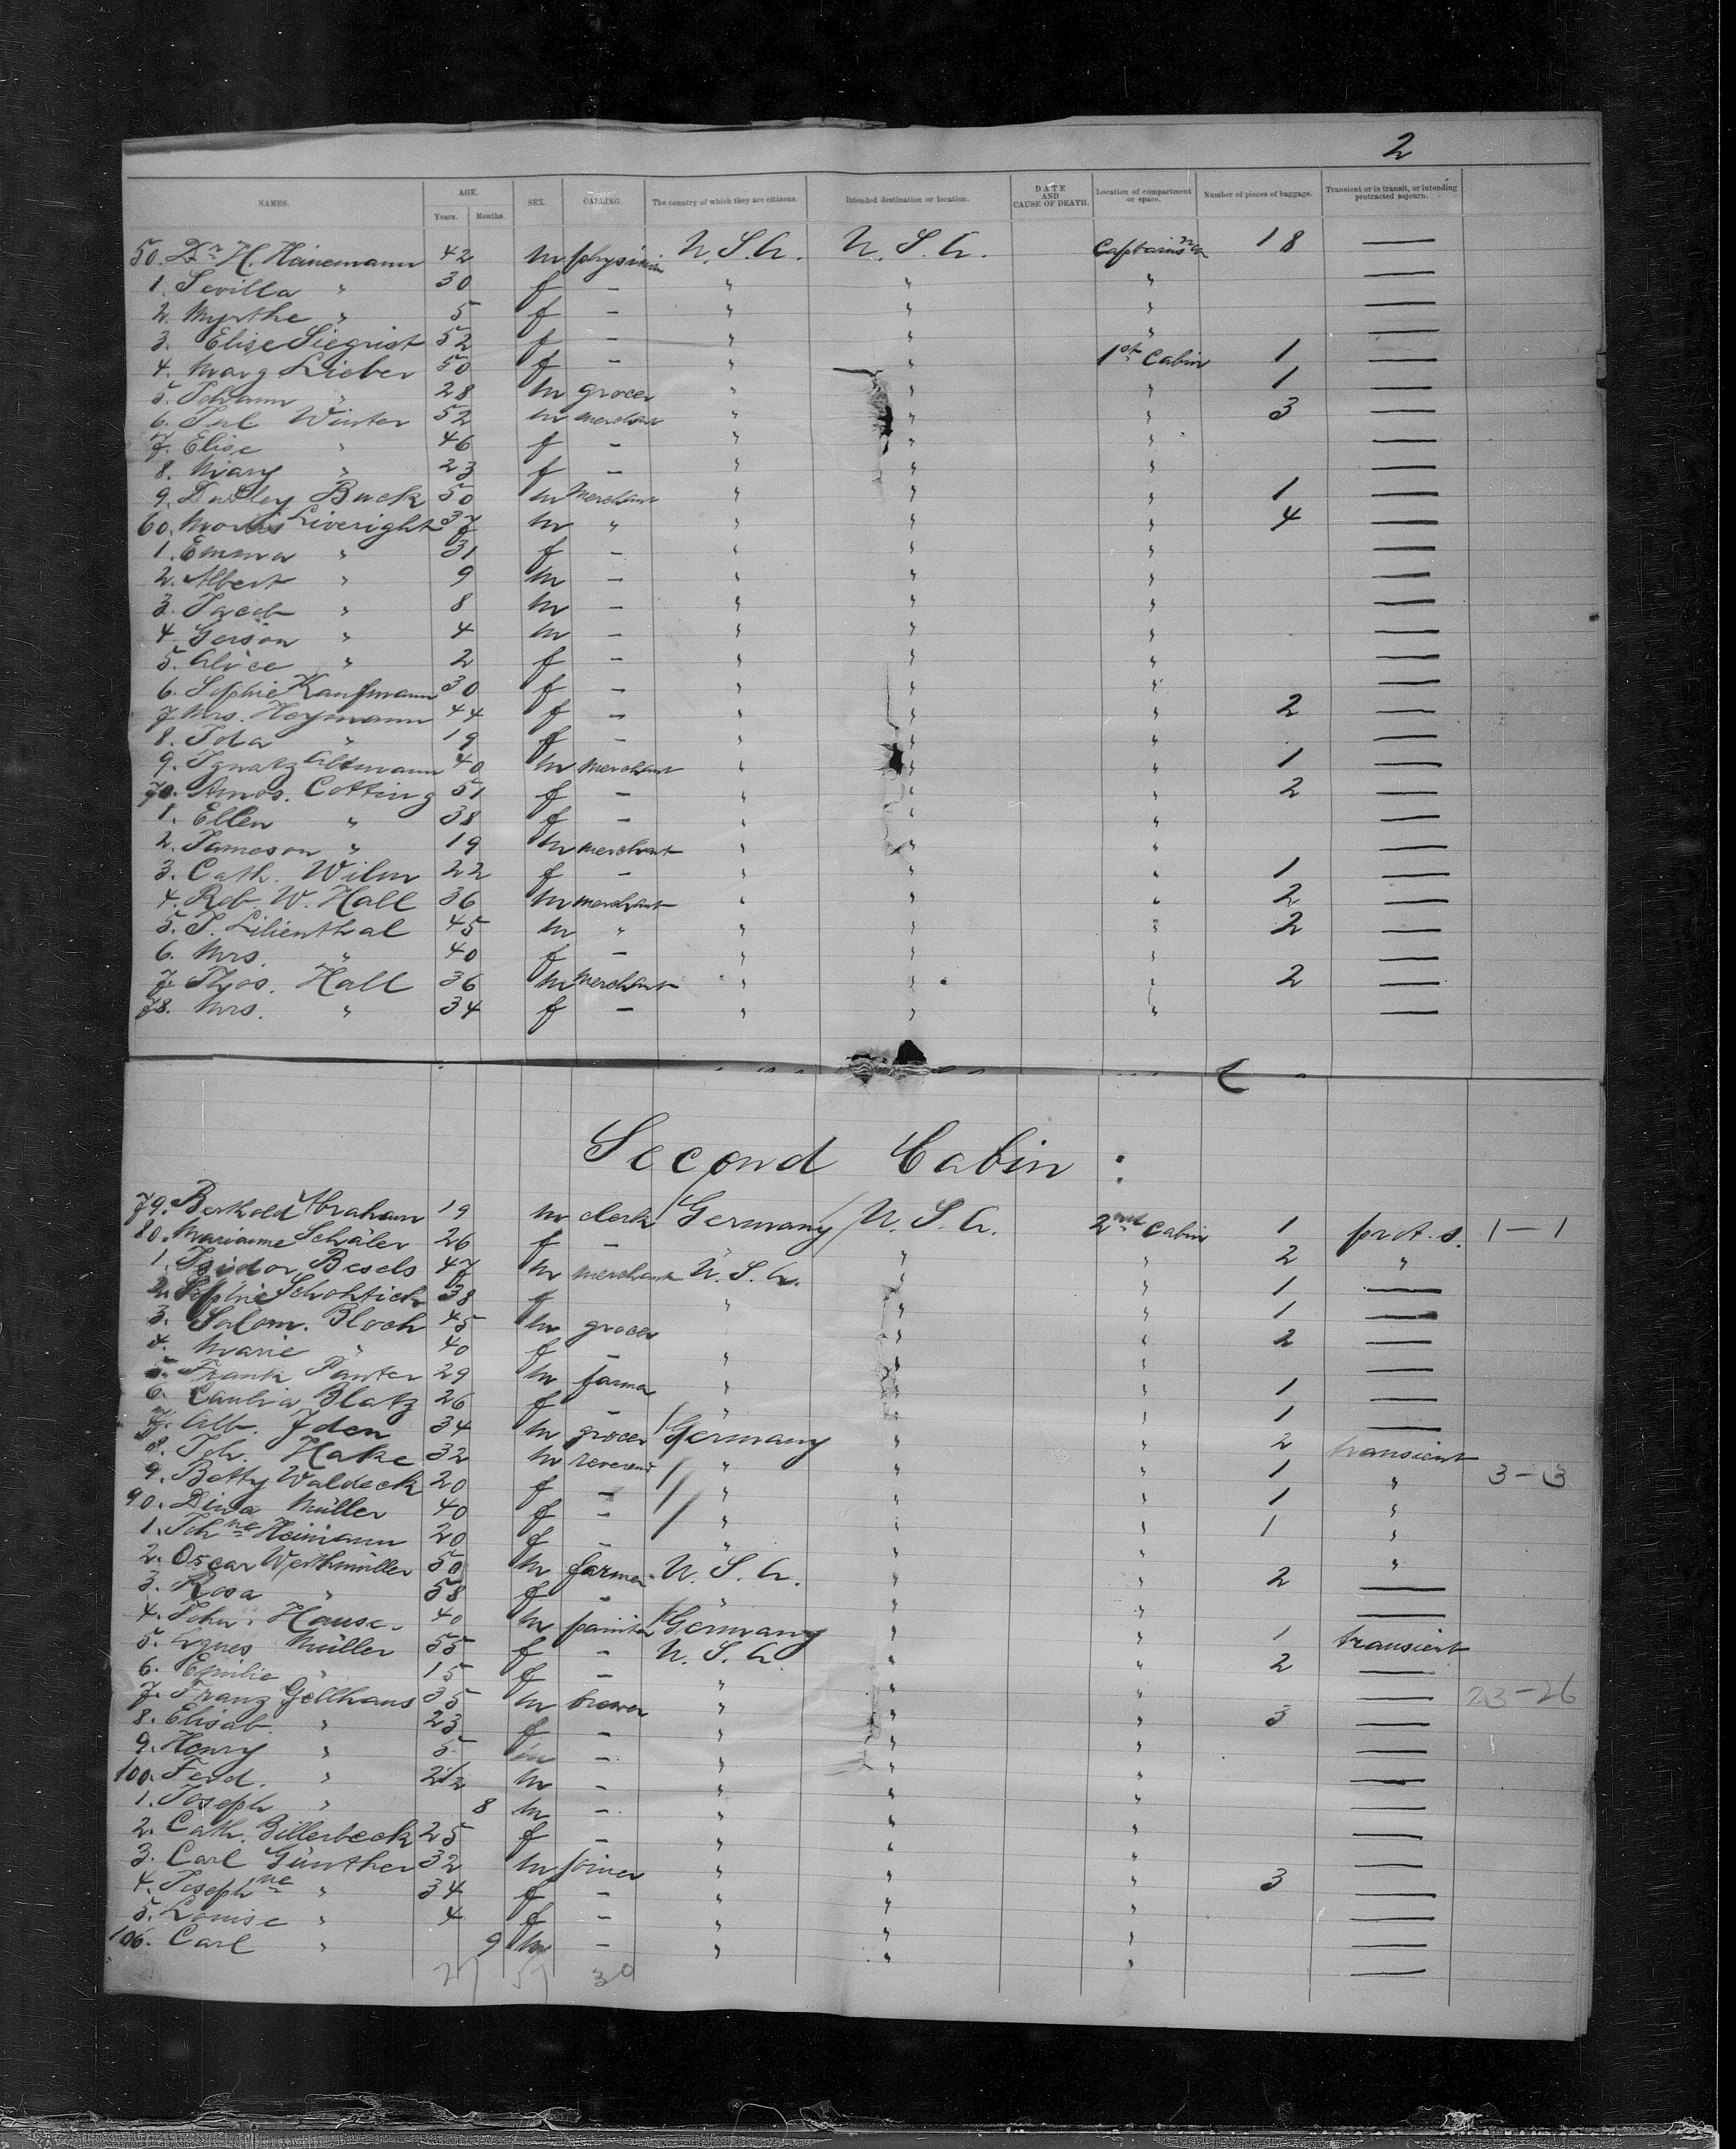 2
NAMES. AGE. Years. Months. SEX. CALLING. The country of which they are citizens. Intended destination or location. DATE AND CAUSE OF DEATH. Location of compartment or space. Number of pieces of baggage. Transient or in transit, or intending protracted sojourn.
50. Dr H. Heinemann 42 m physician U. S. A. U. S. A. Captains 18 —
1. Sevilla " 30 f — " " " —
2. Myrthe " 5 f — " " " —
3. Elise Siegrist 52 f — " " " —
4. Marg Lieber 50 f — " " 1st Cabin 1 —
5. Johann " 28 m grocer " " " 1 —
6. Jul Winter 52 m merchant " " " 3 —
7. Elise " 46 f — " " " —
8. Mary " 23 f — " " " —
9. Dudley Buck 50 m merchant " " " 1 —
60. Morris Liveright 37 m " " " " 4 —
1. Emma " 31 f — " " " —
2. Albert " 9 m — " " " —
3. Jacob " 8 m — " " " —
4. Gerson " 4 m — " " " —
5. Alice " 2 f — " " " —
6. Sophie Kaufmann 30 f — " " " —
7. Mrs. Heymann 44 f — " " " 2 —
8. Ida " 19 f — " " " —
9. Ignatz Altmann 40 m merchant " " " 1 —
70. Amos. Cotting 51 f — " " " 2 —
1. Ellen " 38 f — " " " —
2. Jameson " 19 m merchant " " " —
3. Cath. Wilm 22 f — " " " 1 —
4. Rob. W. Hall 36 m merchant " " " 2 —
5. J. Lilienthal 45 m " " " " 2 —
6. Mrs. " 40 f — " " " —
7. Thos. Hall 36 m merchant " " " 2 —
78. Mrs. " 34 f — " " " —
Second Cabin :
79. Berthold Abraham 19 m clerk Germany U. S. A. 2nd Cabin 1 prot. s. 1—1
80. Marianne Schäler 26 f — " " " 2 "
1. Isidor Besels 47 m merchant U. S. A. " " 1 —
2. Sophie 38 f " " " 1 —
3. Salom. Bloch 45 m grocer " " 2 —
4. Marie " 40 f — " " " —
5. Frank Panter 29 m farmer " " " 1 —
6. Blatz 26 f — " " " 1 —
7. Alb. Iden 34 m grocer Germany " " 2 transient
8. Joh. Hake 32 m reverend " " " 1 " 3—13
9. Betty Waldeck 20 f — " " " 1 "
90. Dina Müller 40 f — " " " 1 "
1. Johne Heimann 20 f — " " " "
2. Oscar Werthmüller 50 m farmer U. S. A. " " 2 —
3. Rosa " 58 f — " " " —
4. John. Hause 40 m painter Germany " " 1 transient
5. Agnes Müller 55 f — U. S. A. " " 2 —
6. Emilie " 15 f — " " " — 23-26
7. Franz Gellhaus 35 m brewer " " " 3 —
8. Elisab. " 23 f — " " " —
9. Henry " 5 m — " " " —
100. Ferd. " 2 1/2 m — " " " —
1. Joseph " 8 m — " " " —
2. Cath. Billerbeck 25 f — " " " —
3. Carl Günther 32 m joiner " " " 3 —
4. Josephne " 34 f — " " " —
5. Louise " 4 f — " " " —
106. Carl " 9 m — " " " —
30